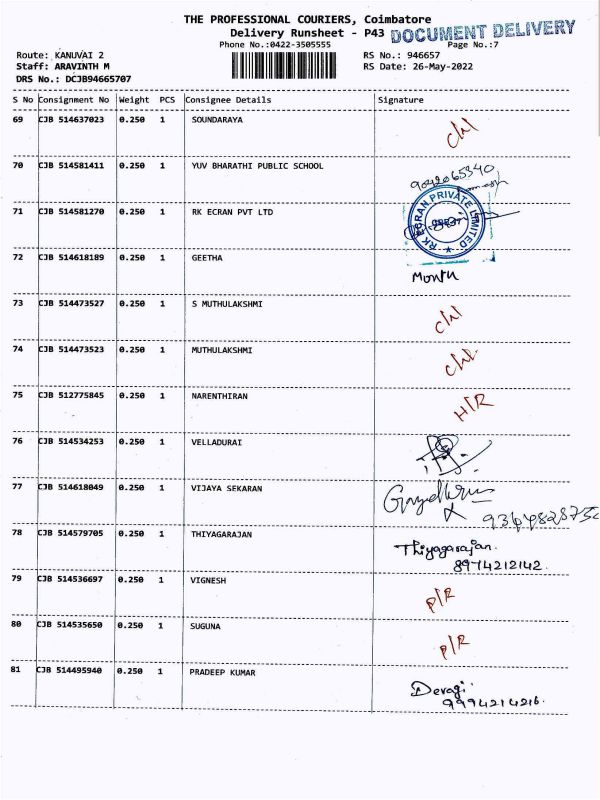 THE PROFESSIONAL COURIERS, Coimbatore
Delivery Runsheet - P43 DOCUMENT DELIVERY
Phone No.:0422-3505555 Page No.:7
Route: KANUVAI 2 RS No.: 946657
Staff: ARAVINTH M RS Date: 26-May-2022
DRS No.: DCJB94665707
S No Consignment No Weight PCS Consignee Details Signature
69 CJB 514637023 0.250 1 SOUNDARAYA
70 CJB 514581411 0.250 1 YUV BHARATHI PUBLIC SCHOOL
9042065340
71 CJB 514581270 0.250 1 RK ECRAN PVT LTD
RK ECRAN PRIVATE LIMITED
72 CJB 514618189 0.250 1 GEETHA
73 CJB 514473527 0.250 1 S MUTHULAKSHMI
74 CJB 514473523 0.250 1 MUTHULAKSHMI
75 CJB 512775845 0.250 1 NARENTHIRAN H/R
76 CJB 514534253 0.250 1 VELLADURAI
77 CJB 514618049 0.250 1 VIJAYA SEKARAN
78 CJB 514579705 0.250 1 THIYAGARAJAN Thiyagarajan.
8974212142.
79 CJB 514536697 0.250 1 VIGNESH P/R
80 CJB 514535650 0.250 1 SUGUNA P/R
81 CJB 514495940 0.250 1 PRADEEP KUMAR
9994214216.